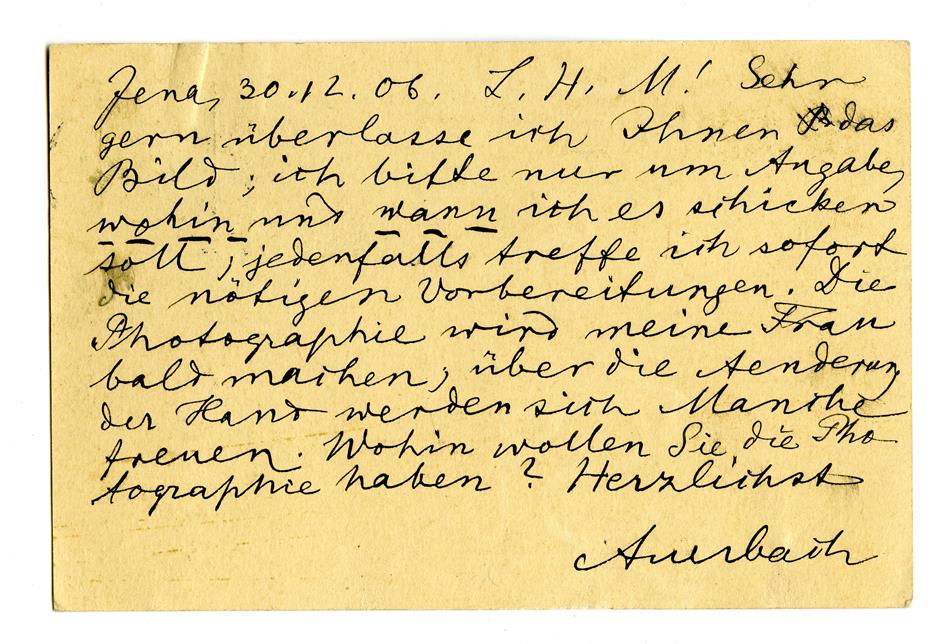 Jena, 30.12.06. L. H. M! Sehr
gern überlasse ich Ihnen das
Bild; ich bitte nur um Angabe,
wohin und wann ich es schicken
soll; jedenfalls treffe ich sofort
die nötigen Vorbereitungen. Die
Photographie wird meine Frau
bald machen; über die Aenderung
der Hand werden sich Manche
freuen. Wohin wollen Sie die Pho
tographie haben? Herzlichst
Auerbach